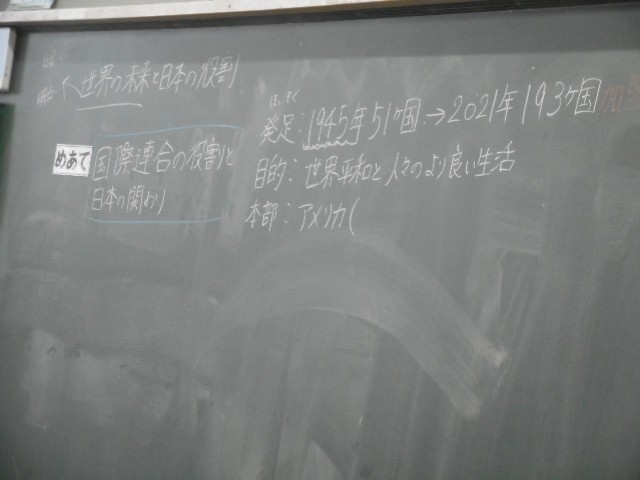 世界の未来と日本の役割
めあて
国際連合の役割と
日本の関わり
ほっそく
発足：1945年51ヶ国→2021年193ヶ国加盟
目的：世界平和と人々のより良い生活
本部：アメリカ(